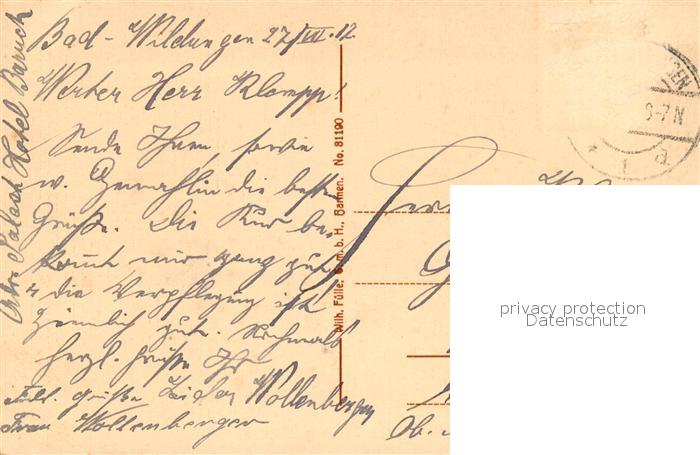 Bad-Wildungen 27/VII.12
Werter Herr Klompp!
Sende Ihnen, sowie
w. Gemahlin die besten
Grüße. Die Kur be-
kommt mir ganz gut
u die Verpflegung ist
ziemlich gut. Nochmals
herzl. Grüße Ihr
Wollenberger
Frdl. Grüße
Frau Wollenberger
Hotel Baruch
Wilh. Fülle, G.m.b.H., Barmen. No. 81190
Herr
Ob.
GEN
6-7 N
privacy protection
Datenschutz